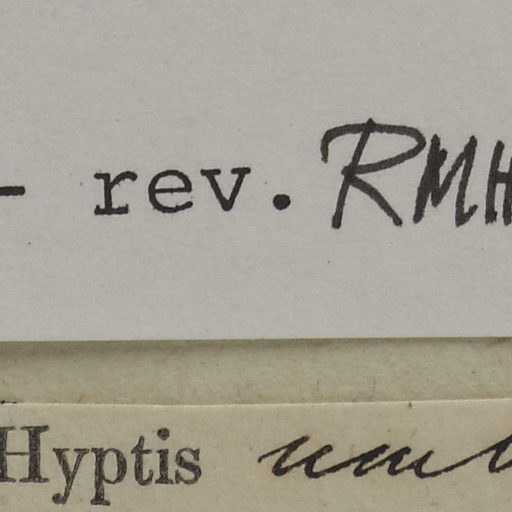 - rev. RMH
Hyptis